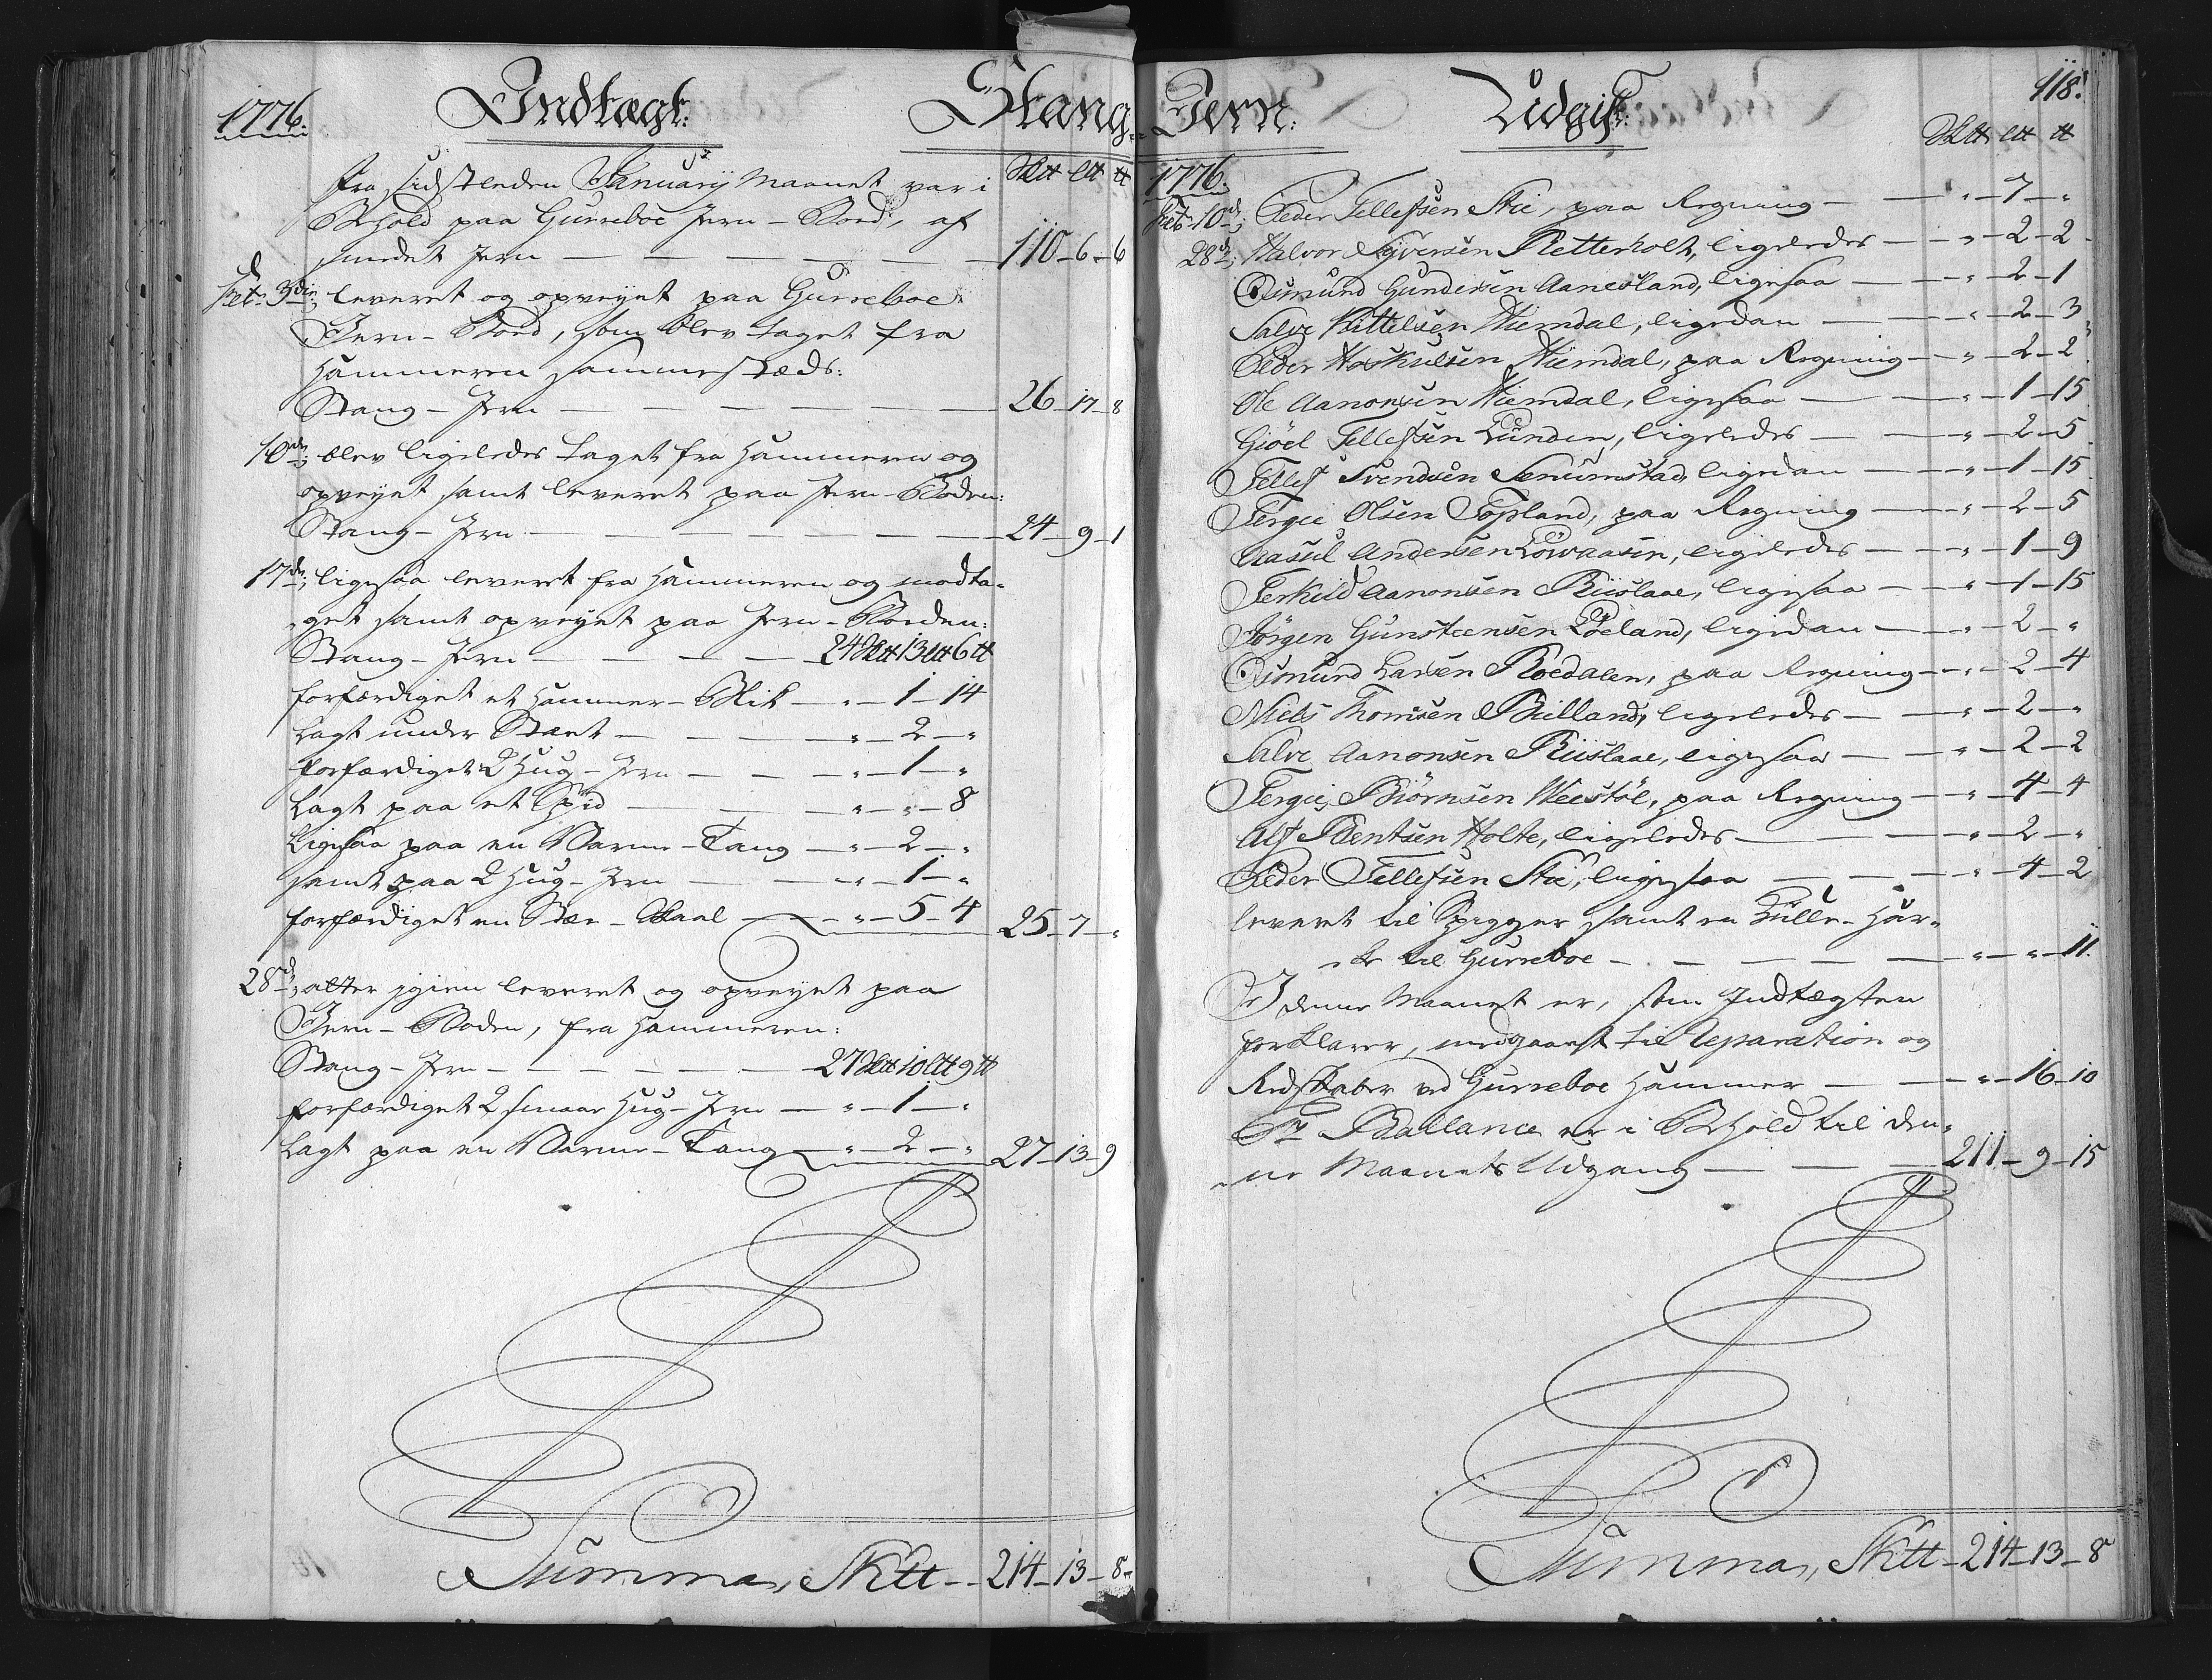 1776. Indtægt: Stang-
Sktt Ltt tt
Fra sidstleden Januarij Maanet var i
Behold paa Gurreboe Jern-Boed, af
smedet Jern — 110-6-6
Febr. 3die; leveret og opveyet paa Gurreboe
Jern-Boed, som blev taget fra
Hammeren sammestæds:
Stang-Jern — 26-17-8
10de; blev ligeledes taget fra Hammeren og
opveyet samt leveret paa Jern-Boden:
Stang-Jern — 24-9-1
17de; ligesaa leveret fra Hammeren og modta-
get samt opveyet paa Jern-Boeden:
Stang-Jern — 24 Sktt 13 Ltt 6 tt
forfærdiget et Hammer-Blik — „-1-14
Lagt under Stæet — „-2-„
forfærdiget 2 Hug-Jern — „-1-„
Lagt paa et Spid — „-„-8
Ligesaa paa en Varme-Tang — „-2-„
samt paa 2 Hug-Jern — „-1-„
forfærdiget en Stæe-Skaal — „-5-4 25-7-„
28de; atter igien leveret og opveyet paa
Jern-Boden, fra Hammeren:
Stang-Jern — 27 Sktt 10 Ltt 9 tt
forfærdiget 2 smaae Hug-Jern — „-1-„
Lagt paa en Varme-Tang — „-2-„ 27-13-9
Summa, Sktt — 214-13-8
118.
Jern: Udgift:
Sktt Ltt tt
1776.
Febr. 10de; Peder Tellefsen Stie, paa Regning — „-7-„
28de; Halvor Syversen Retterholt, ligeledes — „-2-2
Osmund Gundersen Aanesland, ligesaa — „-2-1
Salve Kittelsen Hiemdal, ligedan — „-2-3
Peder Hoskulsen Hiemdal, paa Regning — „-2-2
Ole Aanonsen Hiemdal, ligesaa — „-1-15
Giöel Tellefsen Lunden, ligeledes — „-2-5
Tellef Svendsen Senumstad, ligedan — „-1-15
Tergie Olsen Topland, paa Regning — „-2-5
Aasul Andersen Lövaasen, ligeledes — „-1-9
Terkild Aanonsen Riislaae, ligesaa — „-1-15
Jörgen Gunsteensen Löeland, ligedan — „-2-„
Osmund Larsen Roedalen, paa Regning — „-2-4
Niels Thomsen Bielland, ligeledes — „-2-„
Salve Aanonsen Riislaae, ligesaa — „-2-2
Tergie Biörnsen Weestöl, paa Regning — „-4-4
Alf Bentsen Holte, ligeledes — „-2-„
Peder Tellefsen Stie, ligesaa — „-4-2
leveret til Spigger samt en
til Gurreboe — „-„-11
I denne Maanet er, som Indtægten
forklarer, medgaaet til Reparation og
Redskaber ved Gurreboe Hammer — „-16-10
Pr Ballance er i Behold til den-
ne Maanets Udgang — 211-9-15
Summa, Sktt — 214-13-8